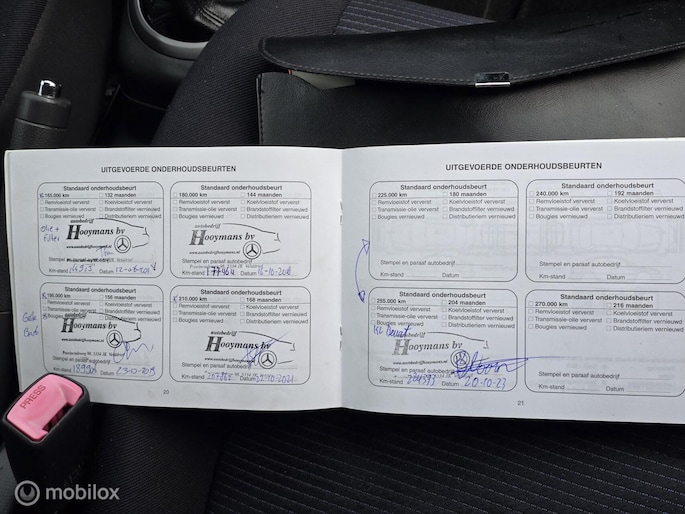 UITGEVOERDE ONDERHOUDSBEURTEN
Standaard onderhoudsbeurt
165.000 km 132 maanden
Remvloeistof ververst Koelvloeistof ververst
Transmissie-olie ververst Brandstoffilter vernieuwd
Bougies vernieuwd Distributieriem vernieuwd
Olie +
Filter
autobedrijf
Hooymans bv
www.autobedrijfhooymans.nl
Stempel en paraaf autobedrijf
Km-stand Datum
Standaard onderhoudsbeurt
180.000 km 144 maanden
Remvloeistof ververst Koelvloeistof ververst
Transmissie-olie ververst Brandstoffilter vernieuwd
Bougies vernieuwd Distributieriem vernieuwd
autobedrijf
Hooymans bv
www.autobedrijfhooymans.nl
Stempel en paraaf autobedrijf
Km-stand 177464 Datum
Standaard onderhoudsbeurt
195.000 km 156 maanden
Remvloeistof ververst Koelvloeistof ververst
Transmissie-olie ververst Brandstoffilter vernieuwd
Bougies vernieuwd Distributieriem vernieuwd
Hooymans bv
Stempel en paraaf autobedrijf
Km-stand Datum
Standaard onderhoudsbeurt
210.000 km 168 maanden
Remvloeistof ververst Koelvloeistof ververst
Transmissie-olie ververst Brandstoffilter vernieuwd
Bougies vernieuwd Distributieriem vernieuwd
autobedrijf
Hooymans bv
Stempel en paraaf autobedrijf
Km-stand Datum
20
UITGEVOERDE ONDERHOUDSBEURTEN
Standaard onderhoudsbeurt
225.000 km 180 maanden
Remvloeistof ververst Koelvloeistof ververst
Transmissie-olie ververst Brandstoffilter vernieuwd
Bougies vernieuwd Distributieriem vernieuwd
Stempel en paraaf autobedrijf
Km-stand Datum
Standaard onderhoudsbeurt
240.000 km 192 maanden
Remvloeistof ververst Koelvloeistof ververst
Transmissie-olie ververst Brandstoffilter vernieuwd
Bougies vernieuwd Distributieriem vernieuwd
Stempel en paraaf autobedrijf
Km-stand Datum
Standaard onderhoudsbeurt
255.000 km 204 maanden
Remvloeistof ververst Koelvloeistof ververst
Transmissie-olie ververst Brandstoffilter vernieuwd
Bougies vernieuwd Distributieriem vernieuwd
Hooymans bv
Stempel en paraaf autobedrijf
Km-stand Datum 20-10-23
Standaard onderhoudsbeurt
270.000 km 216 maanden
Remvloeistof ververst Koelvloeistof ververst
Transmissie-olie ververst Brandstoffilter vernieuwd
Bougies vernieuwd Distributieriem vernieuwd
Stempel en paraaf autobedrijf
Km-stand Datum
21
PRESS
mobilox